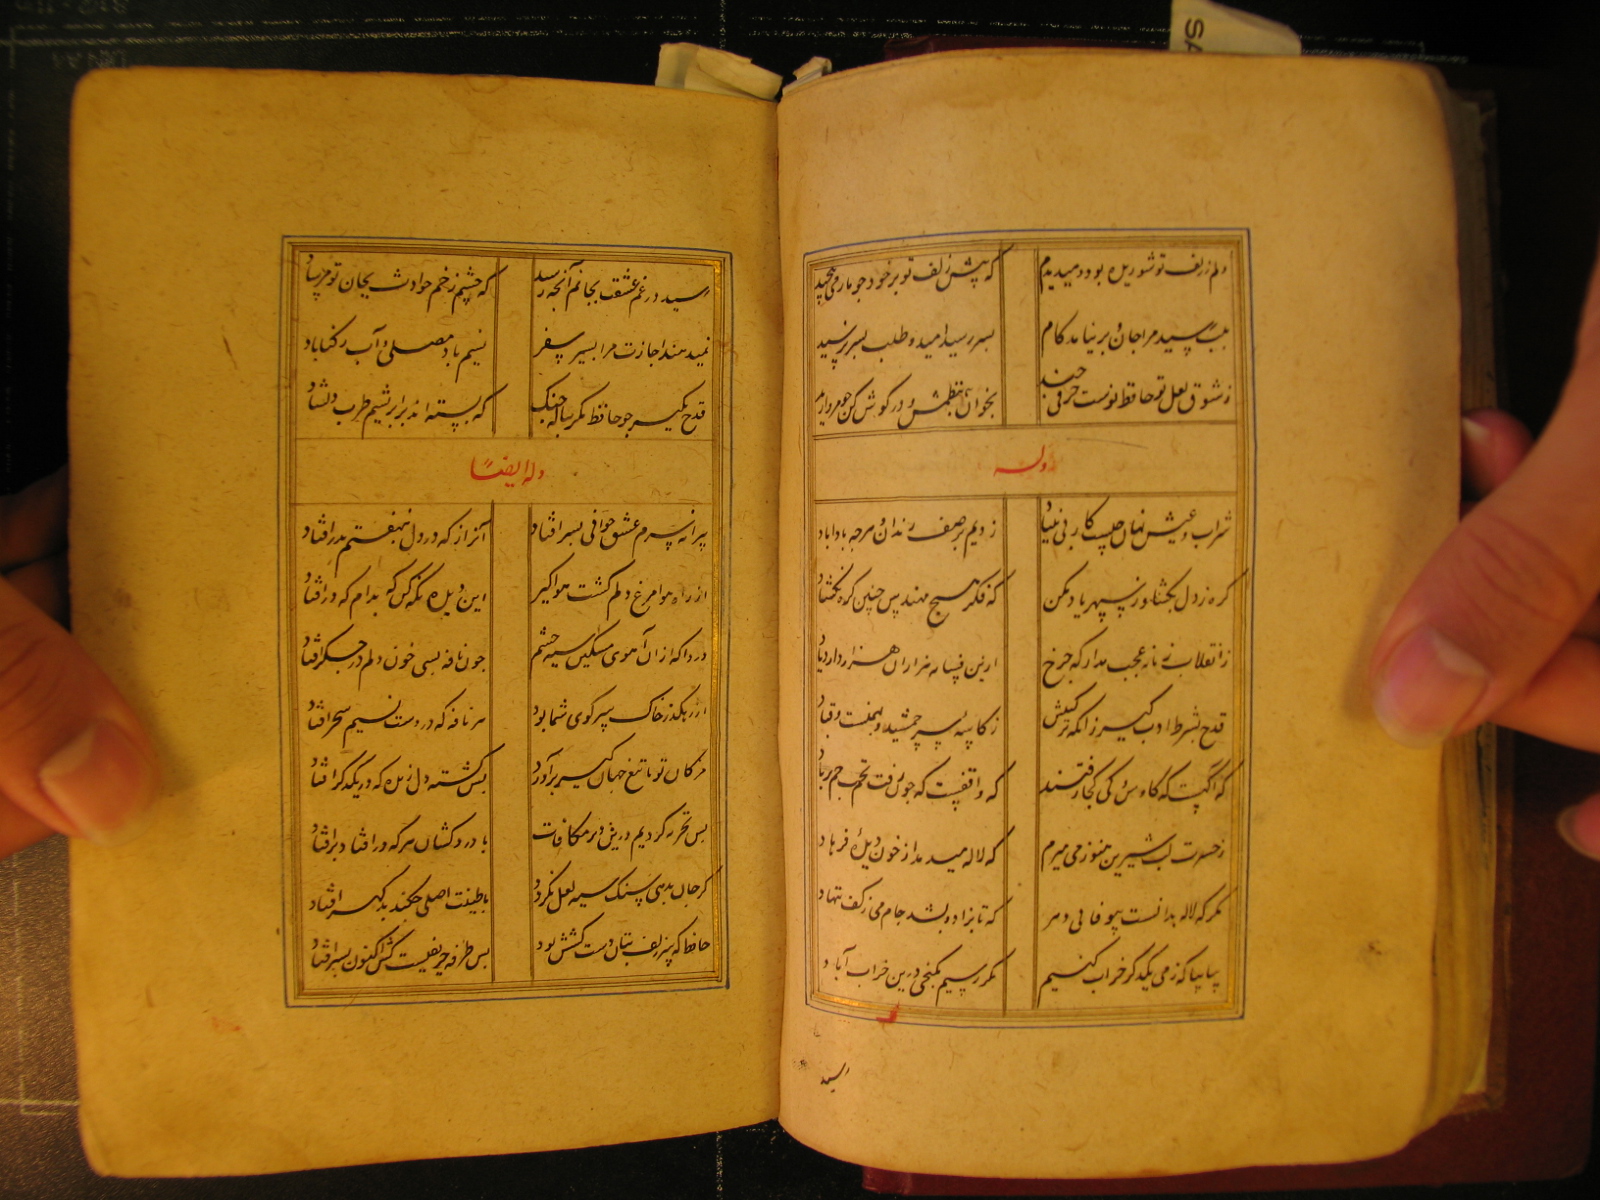 SA
دلم ز زلف تو شوریده بود و میدیدم که پیش زلف تو بر خود چو مار می پیچید
بلب رسید مرا جان و بر نیامد کام بسر رسید امید و طلب بسر نرسید
ز شوق لعل تو حافظ نوشت حرفی چند بخوان تو نظمش و در گوش کن چو مروارید
وله
شراب و عیش نهان چیست کار بی بنیاد زدیم بر صف رندان و هرچه بادا باد
گره ز دل بگشا وز سپهر یاد مکن که فکر هیچ مهندس چنین گره نگشاد
ز انقلاب زمانه عجب مدار که چرخ ازین فسانه هزاران هزار دارد یاد
قدح بشرط ادب گیر زانکه ترکیبش ز کاسه سر جمشید و بهمنست و قباد
که آگهست که کاوس و کی کجا رفتند که واقفست که چون رفت تخت جم بر باد
ز حسرت لب شیرین هنوز می بینم که لاله میدمد از خون دیده فرهاد
مگر که لاله بدانست بیوفائی دهر که تا بزاد و بشد جام می ز کف ننهاد
بیا بیا که ز می یکدگر خراب کنیم مگر رسیم بگنجی درین خراب آباد
رسید
رسید در غم عشقت بجانم آنچه رسید که چشم زخم حوادث بجان تو مرساد
نمیدهند اجازت مرا بسیر سفر نسیم باد مصلی و آب رکناباد
قدح مگیر چو حافظ مگر بناله چنگ که بسته اند بر ابریشم طرب دلشاد
وله ایضا
پیرانه سرم عشق جوانی بسر افتاد آن راز که در دل بنهفتم بدر افتاد
از راه هوا مرغ دلم گشت هواگیر ای دیده نگه کن که بدام که در افتاد
دردا که از آن آهوی مشکین سیه چشم چون نافه بسی خون دلم در جگر افتاد
از رهگذر خاک سر کوی شما بود هر نافه که در دست نسیم سحر افتاد
مژگان تو تا تیغ جهانگیر برآورد بس کشته دل زنده که در یکدگر افتاد
بس تجربه کردیم درین دیر مکافات با دردکشان هر که در افتاد بر افتاد
گر جان بدهی سنگ سیه لعل نگردد با طینت اصلی چکند بد گهر افتاد
حافظ که سر زلف بتان دست کشش بود بس طرفه حریفیست کش اکنون بسر افتاد